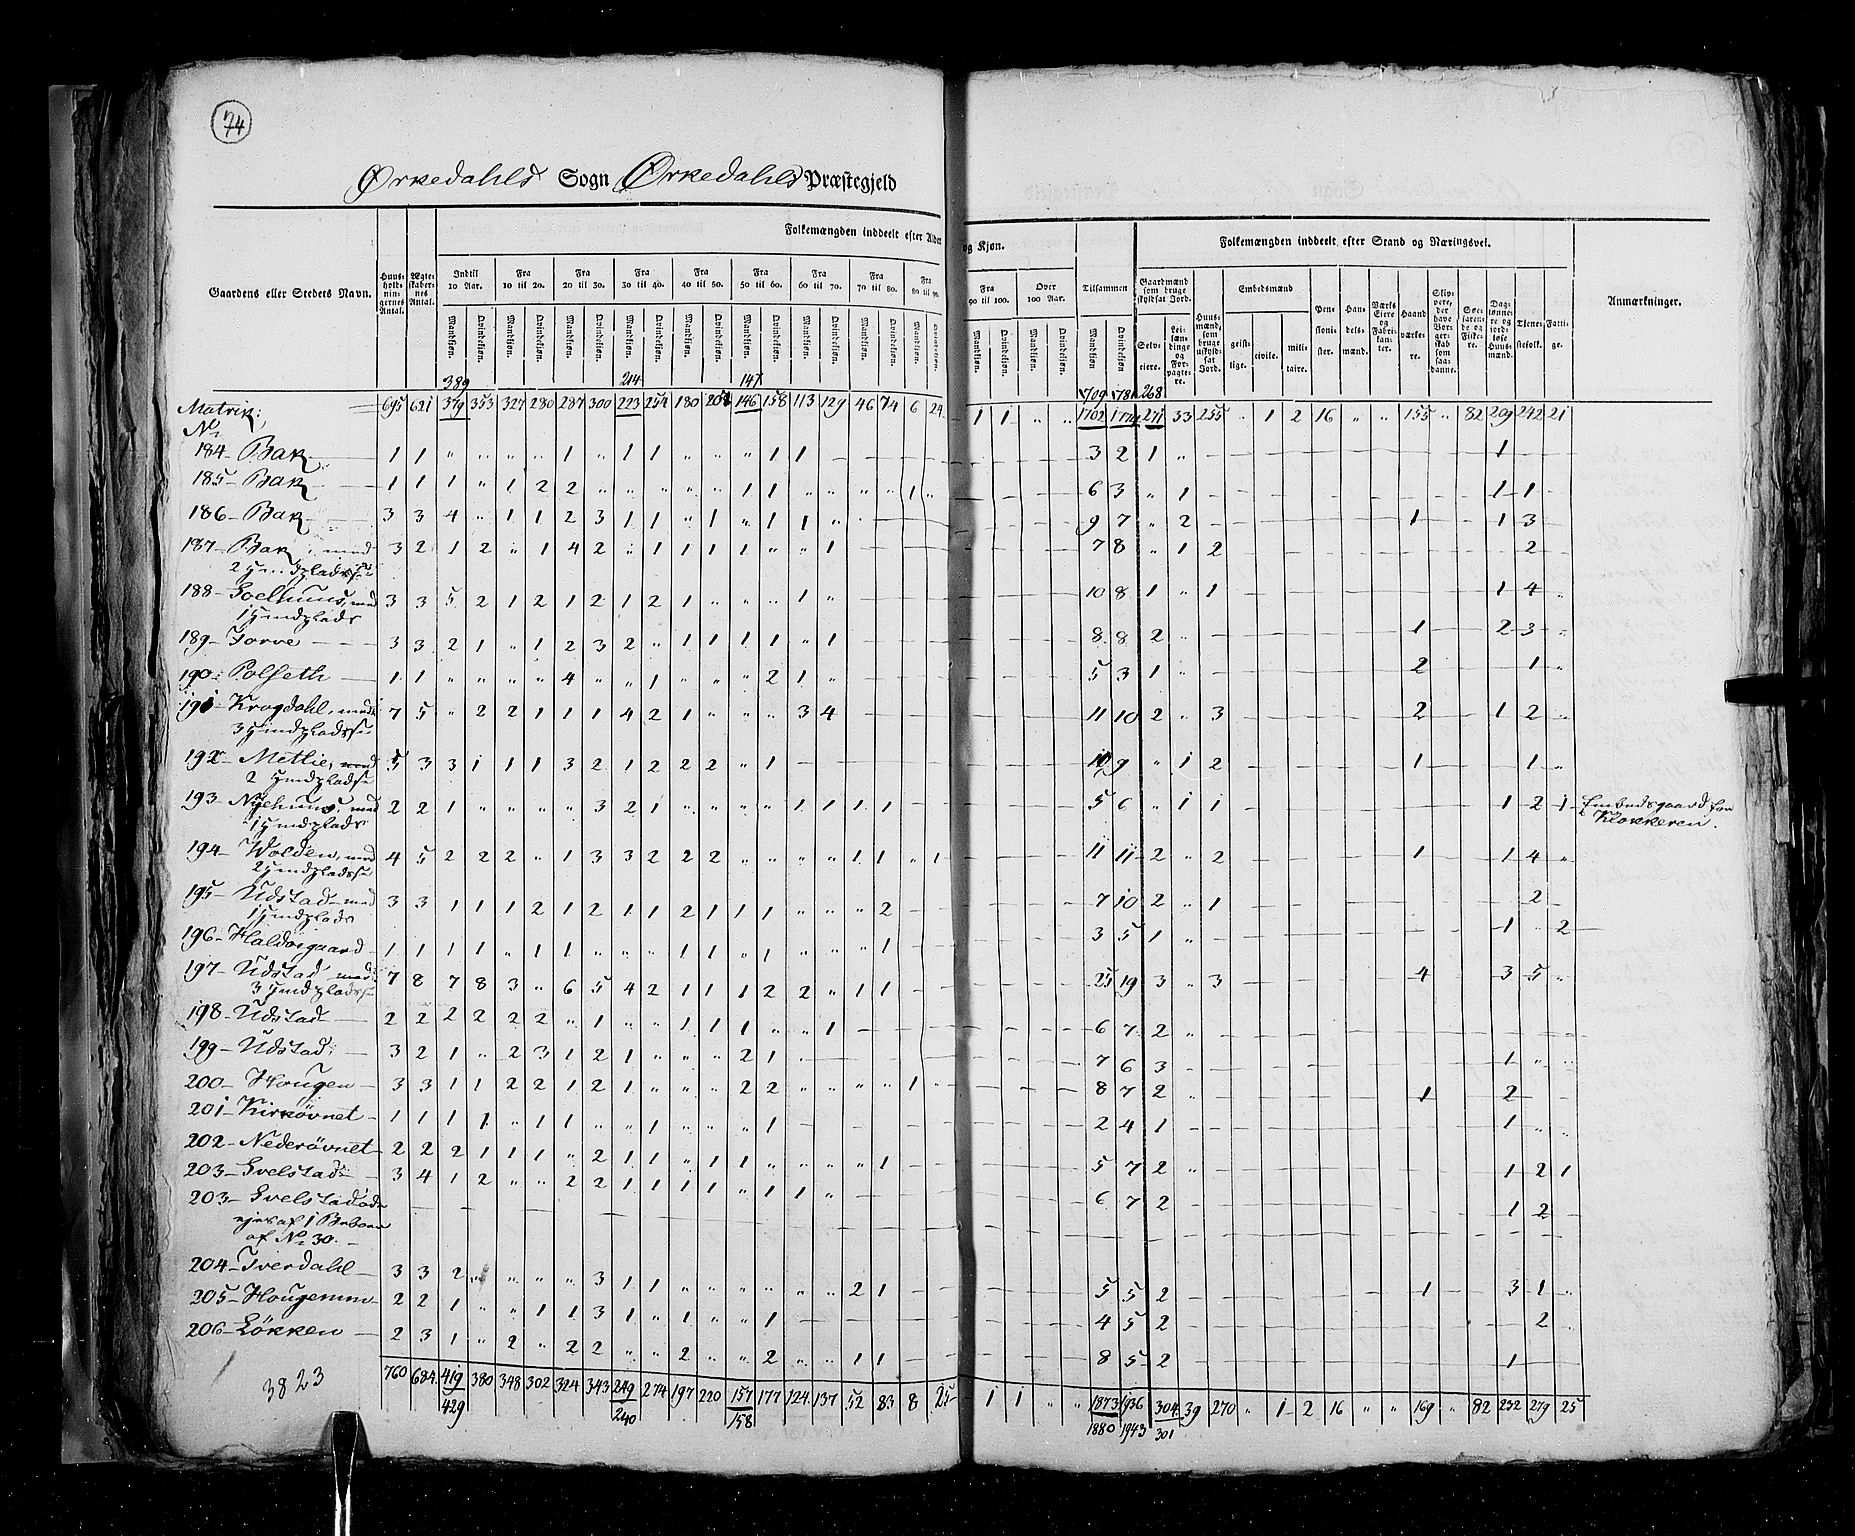 74
Ørkedahls Sogn Ørkedahls Præstegjeld
Gaardens eller Stedets Navn. Huusholdningernes Antal. Ægteskabernes Antal. Folkemængden inddeelt efter Alder og Kjøn. Folkemængden inddeelt efter Stand og Næringsvei. Anmærkninger.
Indtil 10 Aar. Fra 10 til 20. Fra 20 til 30. Fra 30 til 40. Fra 40 til 50. Fra 50 til 60. Fra 60 til 70. Fra 70 til 80. Fra 80 til 90. Fra 90 til 100. Over 100 Aar. Tilsammen
Mandkjøn. Qvindekjøn.
Gaardmænd som bruge skyldsat Jord. Selveiere. Leilændinge og Forpagtere. Huusmænd, som bruge uskyldsat Jord. Embedsmænd geistlige. civile. militaire. Pensionister. Handelsmænd. Værks Eiere og Fabrikanter. Haandværkere. Skippere, der have Borgerskab som saadanne. Søefarende og Fiskere. Daglønnere og jordløse Huusmænd. Tjenestefolk. Fattige.
389 214 147 268
Matrik: 695 621 379 353 327 280 287 300 223 254 180 201 146 158 113 129 46 74 6 24 1 1 " " 1702 1774 271 33 255 " 1 2 16 " " 155 " 82 209 242 21
No
184 - Bak 1 1 " " " " 1 " 1 1 " " " 1 1 3 2 1 " 1
185 - Bak 1 1 1 " 1 2 2 " " " " " 1 1 " " " " 1 " 6 3 " 1 1 1
186 - Bak 3 3 4 " 1 1 2 3 1 1 " 1 " 1 1 " 9 7 " 2 1 1 3
187 - Bak, med 3 2 1 2 " 1 4 2 " 1 1 1 1 " " 1 7 8 " 1 2 2
2 Huusplads
188 - Soelhuus, med 3 3 5 2 1 2 1 2 1 2 1 " " " 1 " 10 8 1 " 1 1 4 "
1 Huusplads
189 - Forve 3 3 2 1 " 1 2 3 2 " 1 1 1 1 " 1 8 8 2 " 1 2 3 "
190 - Polseth 1 1 " " " " 4 " " 1 " " " 2 1 " 5 3 1 " 2 1 "
191 - Krogdahl, med 7 5 " 2 2 1 1 1 4 2 1 " " " 3 4 11 10 2 " 3 2 1 2 "
3 Huusplads
192 - Metlie, med 5 3 3 1 1 1 3 2 1 2 2 2 " 1 10 9 " 1 2 1 1 "
2 Huusplads
193 - Nyehuus, med 2 2 1 " " " " 3 2 1 " " " " 1 1 1 1 5 6 " 1 1 1 2 1 Embedsgaard for
1 Huusplads Klokkeren.
194 - Wolden, med 4 5 2 2 2 " 1 3 3 2 2 2 " " " " 1 1 " 1 11 11 2 " 2 1 1 4 "
2 Huusplads
195 - Udstad - med 3 3 1 1 1 2 1 2 1 1 2 1 1 1 " " " 2 7 10 2 " 1 2
1 Huusplads
196 - Haldosgaard 1 1 1 1 " 1 1 " " " 1 1 " 1 " " " 1 3 5 1 " 1 " 2
197 - Udstad med 7 8 7 8 3 " 6 5 4 2 1 1 1 2 2 " 1 1 25 19 3 " 3 4 3 5 "
3 Huusplads
198 - Udstad 2 2 2 2 2 2 " 1 " " 1 1 1 " " 1 6 7 2 "
199 - Udstad 3 2 1 " 2 3 1 2 1 " " " 2 1 " 7 6 3 1 " "
200 - Hougen 3 3 1 1 2 2 1 2 1 " " " 2 2 " " " " 1 " 8 7 2 " 1 2
201 - Kirkøvnet 1 1 1 1 " 1 1 " " 1 " " " 1 2 4 1 " 1 " "
202 - Nederøvnet 2 2 2 1 1 1 " 2 1 1 " 1 1 " " " " 1 5 7 2 " 1 2 1
203 - Evelstad 3 4 1 2 " " 2 2 1 1 1 1 " 1 1 " 6 7 2 1 2
203 - Evelstadøde
ejes af 1 Beboer
af No 30.
204 - Tverdahl 3 3 2 " " " " 3 1 1 " " " " " " 2 1 5 5 2 1 3 1 "
205 - Hougemm 2 2 1 " " 1 1 3 1 " 1 " " 1 4 5 2 2 "
206 - Løkken 2 3 1 " 2 " 2 2 " " 2 " " 2 " " 1 1 8 5 2 1
3823 760 684 419 380 348 302 324 343 249 274 197 220 157 177 124 137 52 83 8 25 1 1 " " 1873 1936 304 39 270 " 1 2 16 " " 169 " 82 232 279 25
429 240 158 1880 1943 301